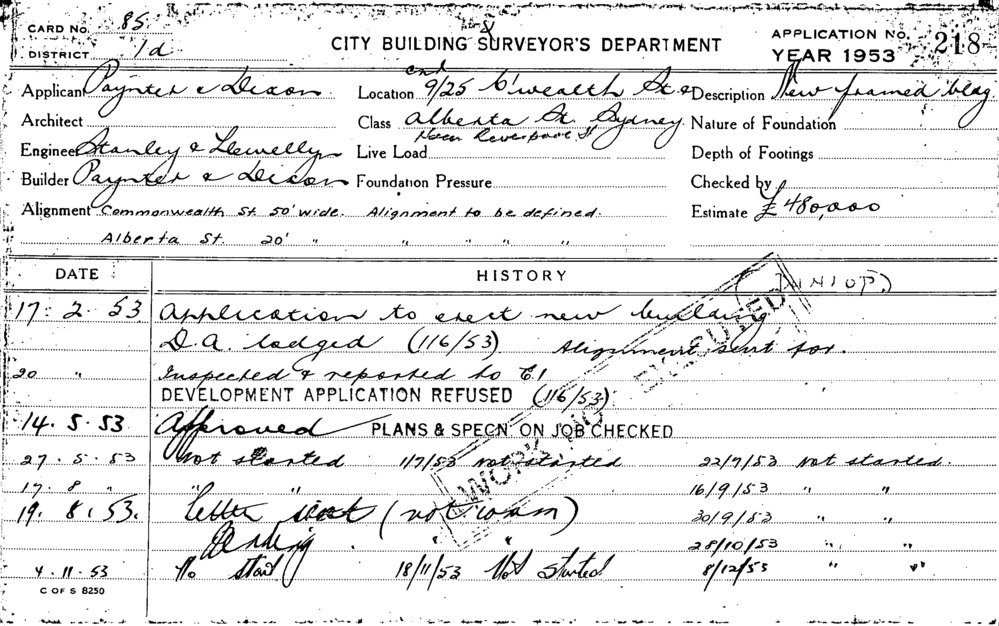 CARD No. 85
DISTRICT 1d
CITY BUILDING SURVEYOR'S DEPARTMENT
APPLICATION No. 218
YEAR 1953
Applicant Paynter & Dixon Location 9/25 C'wealth St & Description New framed bldg.
Architect Class Alberta St. Sydney Nature of Foundation
near Liverpool St
Engineer Stanley & Llewellyn Live Load Depth of Footings
Builder Paynter & Dixon Foundation Pressure Checked by
Alignment Commonwealth St 50' wide. Alignment to be defined. Estimate £480,000
Alberta St. 20' " " " " "
DATE HISTORY
17.2.53 Application to erect new building
D.A. lodged (116/53) Alignment sent for.
20 " Inspected & reported to
DEVELOPMENT APPLICATION REFUSED (116/53)
14.5.53 Approved PLANS & SPECN. ON JOB CHECKED
27.5.53 Not started 1/7/53 not started 22/7/53 not started.
17.8 " " " 16/9/53 " "
19.8.53. letter (not comm) 30/9/53 " "
Pending " " 28/10/53 " "
4.11.53 No start 18/11/53 Not Started 8/12/53 " "
C OF S 8250